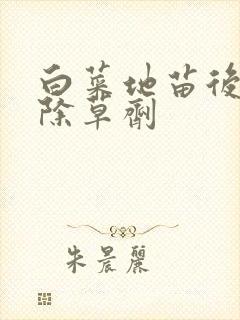 白菜地苗後
除草劑
朱晨麗